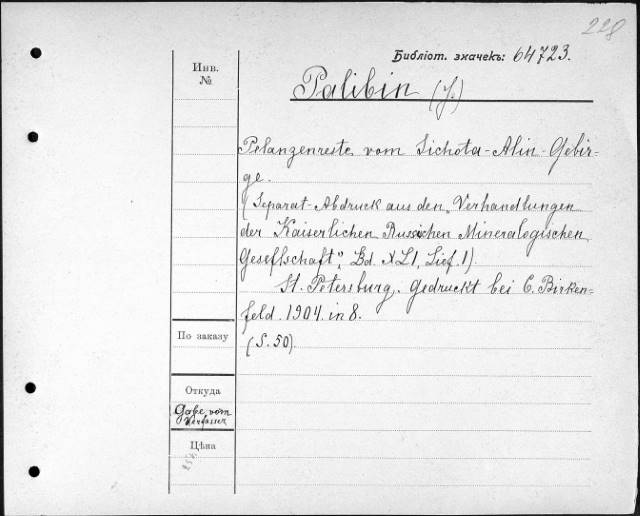 228
Библіот. значекъ: 64723.
Инв.
№
Palibin (J.)
Pelanzenreste vom Sichota-Alin-Gebir-
ge.
(Separat-Abdruck aus den „Verhandlungen
der Kaiserlichen Russichen Mineralogischen
Gesellschaft“, Bd. XLI, Lief. 1).
St. Petersburg. Gedruckt bei C. Birken-
feld. 1904. in 8.
По заказу
(S. 50).
Откуда
Gabe vom
Verfasser
Цѣна